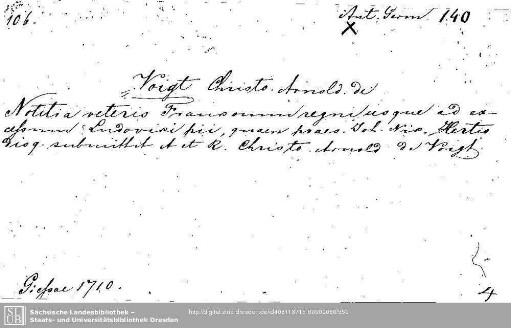 106.
Ant. Germ 140
Voigt Christo. Arnold. de
Notitia veteris Francorum regni usque ad ex-
cessum Ludovici pii, quam praes. Joh. Nic. Hertio
Disq. submittit A et R. Christo. Arnold de Voigt
Giessae 1710.
4
SLUB
Sächsische Landesbibliothek –
Staats- und Universitätsbibliothek Dresden